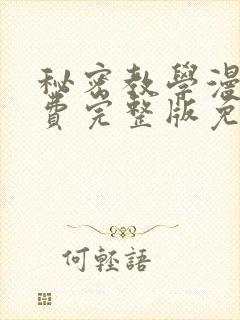 秘密教學漫
費完整版免
何輕語